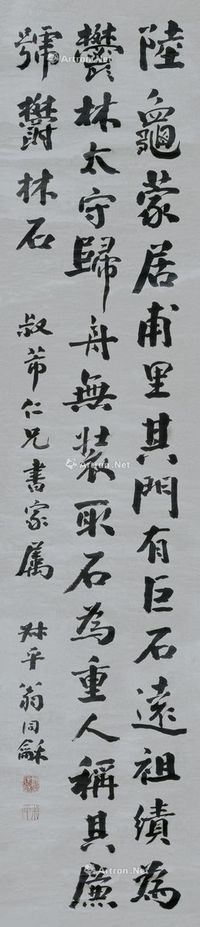 陸龜蒙居甫里其門有巨石遠祖績為
鬱林太守歸舟無裝取石為重人稱其廉
號鬱林石
叔芾仁兄書家屬 叔平翁同龢
Artron.Net
Artron.Net
Artron.Net
Artron.Net